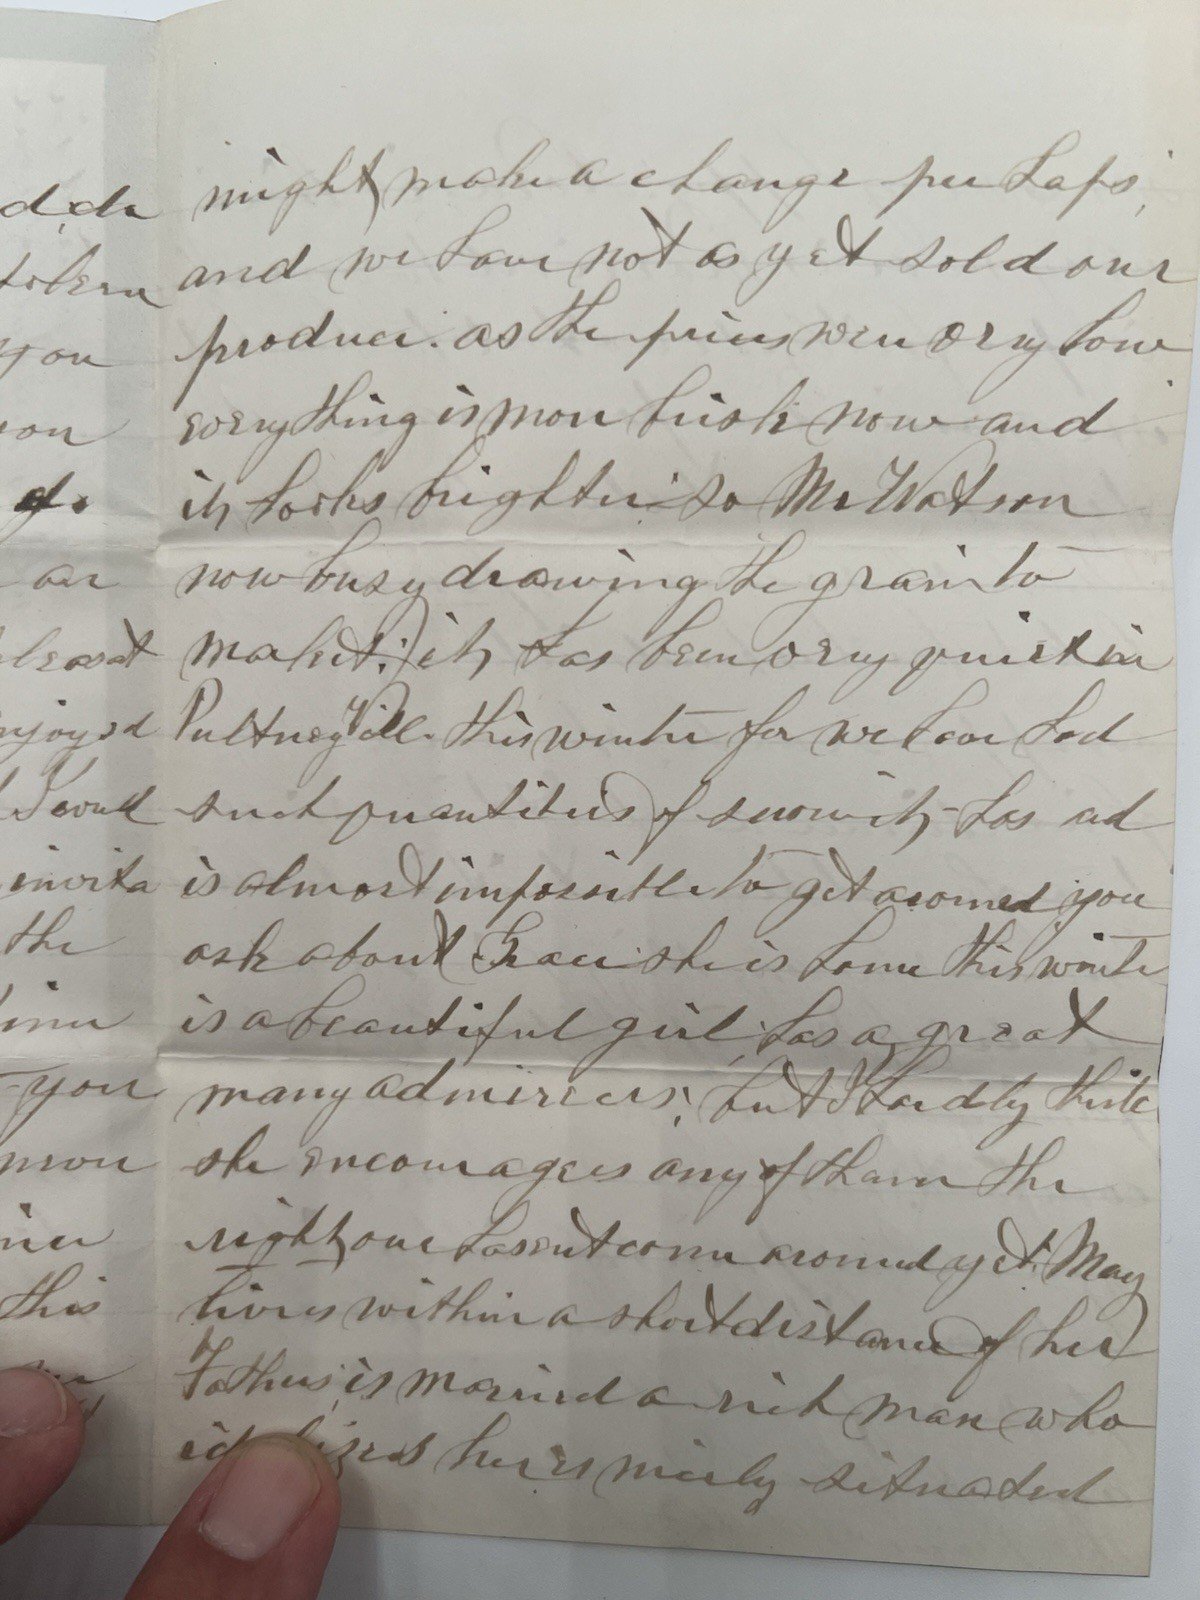 might make a change perhaps,
and we have not as yet sold our
produce. as the prices were very low
everything is more brisk now and
it looks brighter so Mr Watson
now busy drawing the grain to
market; it has been very quiet in
PultneyVill. this winter for we have had
such quantities of snow it has
is almost impossible to get around you
ask about Grace she is home this winter
is a beautiful girl, has a great
many admirers; but I hardly think
she encourages any of them the
right one hasent come around yet. May
lives within a short distance of her
Fathers, is married a rich man who
idolizes her is nicely situated
you
enjoyed
I would
invita
the
you
this